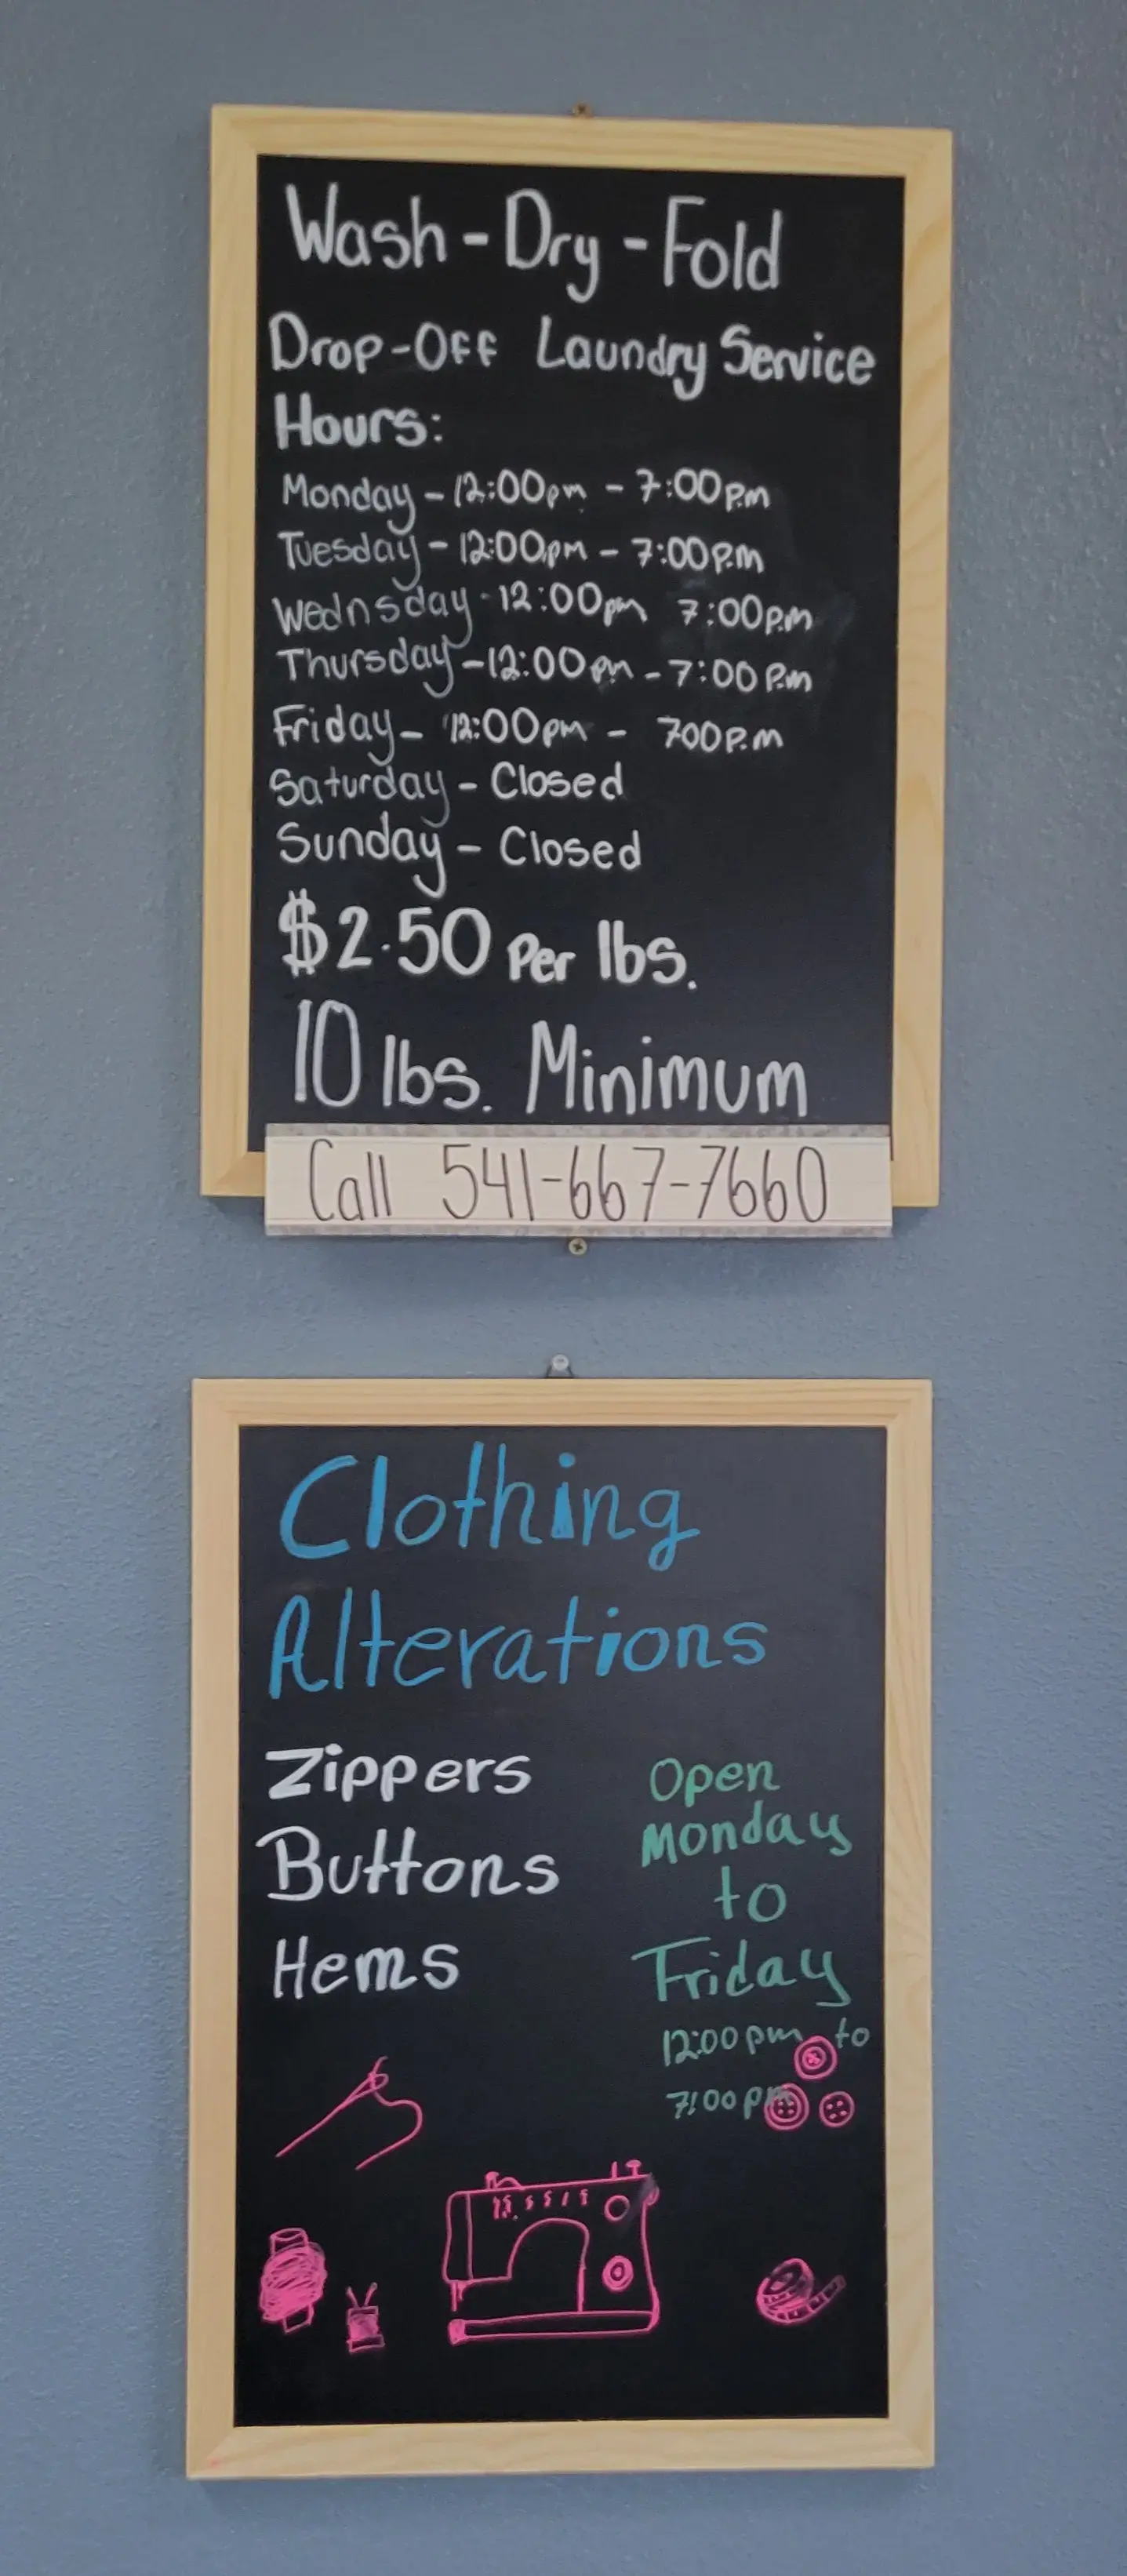 Wash - Dry - Fold
Drop-Off Laundry Service
Hours:
Monday - 12:00pm - 7:00P.m
Tuesday - 12:00pm - 7:00P.m
Wednsday - 12:00pm 7:00P.m
Thursday - 12:00pm - 7:00P.m
Friday - 12:00pm - 700P.m
Saturday - Closed
Sunday - Closed
$2.50 Per lbs.
10 lbs. Minimum
Call 541-667-7660
Clothing
Alterations
Zippers
Buttons
Hems
Open
Monday
to
Friday
12:00pm to
7:00pm